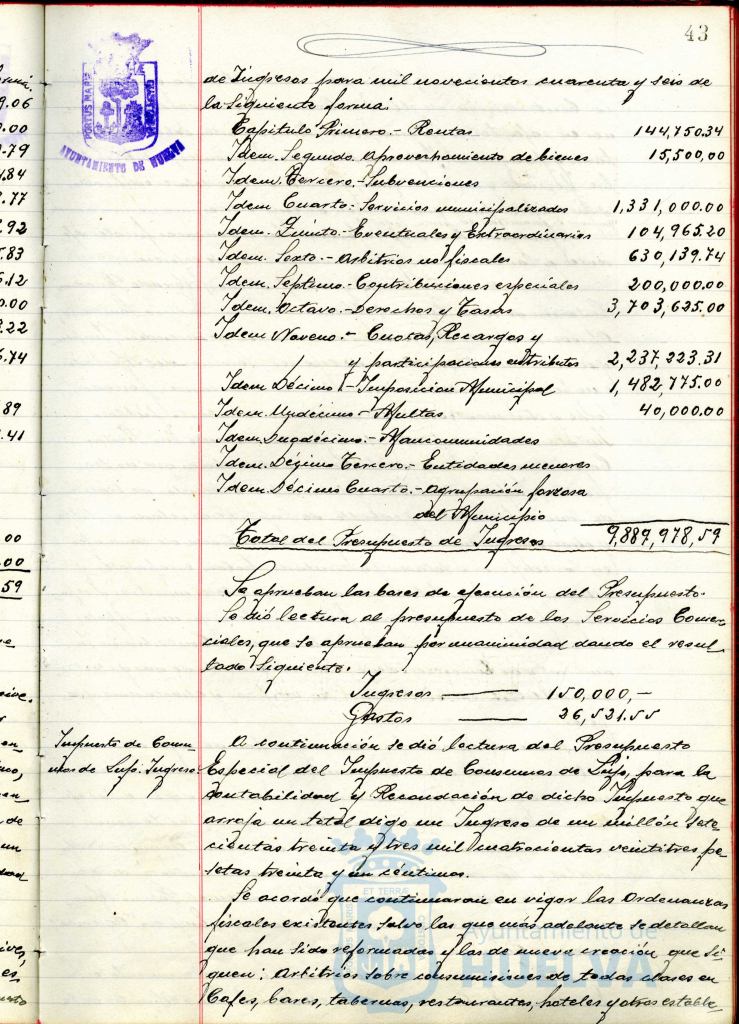 43
PORTUS MARIS
AYUNTAMIENTO DE HUELVA
de Ingresos para mil novecientos cuarenta y seis de
la siguiente forma:
Capitulo Primero.- Rentas 144,750.34
Idem. Segundo. Aprovechamiento de bienes 15,500,00
Idem. Tercero.- Subvenciones
Idem Cuarto.- Servicios municipalizados 1,331,000.00
Idem. Quinto.- Eventuales y Extraordinarios 104,965.20
Idem. Sexto.- Arbitrios no fiscales 630,139.74
Idem. Septimo.- Contribuciones especiales 200,000.00
Idem. Octavo.- Derechos y Tasas 3,703,625.00
Idem Noveno.- Cuotas, Recargos y
y participaciones en tributos 2,237,223.31
Idem Décimo.- Imposicion Municipal 1,482,775.00
Idem. Undécimo.- Multas 40,000.00
Idem. Duodécimo.- Mancomunidades
Idem. Décimo Tercero.- Entidades menores
Idem. Décimo Cuarto.- Agrupación forzosa
del Municipio
Total del Presupuesto de Ingresos 9,889,978,59
Se aprueban las bases de ejecución del Presupuesto.
Se dió lectura al presupuesto de los Servicios Comer-
ciales, que se aprueban por unanimidad dando el resul-
tado siguiente.
Ingresos 150,000,-
Gastos 26,521.55
Impuesto de Consu-
mos de Lujo. Ingreso.
A continuación se dió lectura del Presupuesto
Especial del Impuesto de Consumos de Lujo, para la
contabilidad y Recaudación de dicho Impuesto que
arroja un total digo un Ingreso de un millón sete-
cientas treinta y tres mil cuatrocientas veintitres pe-
setas treinta y un céntimos.
Se acordó que continuaran en vigor las Ordenanzas
fiscales existentes salvo las que más adelante se detallan
que han sido reformadas y las de nueva creación que si-
guen: Arbitrios sobre consumisiones de todas clases en
Cafes, bares, tabernas, restaurantes, hoteles y otros estable-
Ayuntamiento de
HUELVA